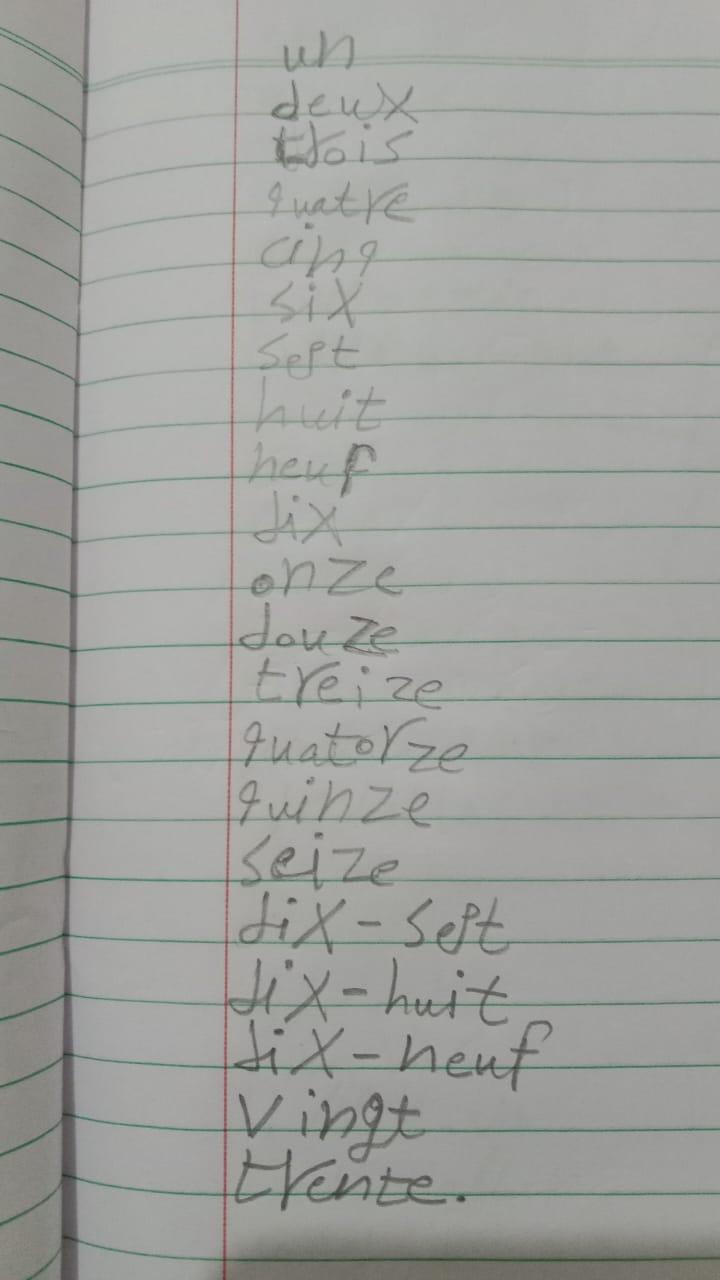 un
deux
trois
quatre
cinq
six
sept
huit
neuf
dix
onze
douze
treize
quatorze
quinze
seize
dix-sept
dix-huit
dix-neuf
vingt
trente.